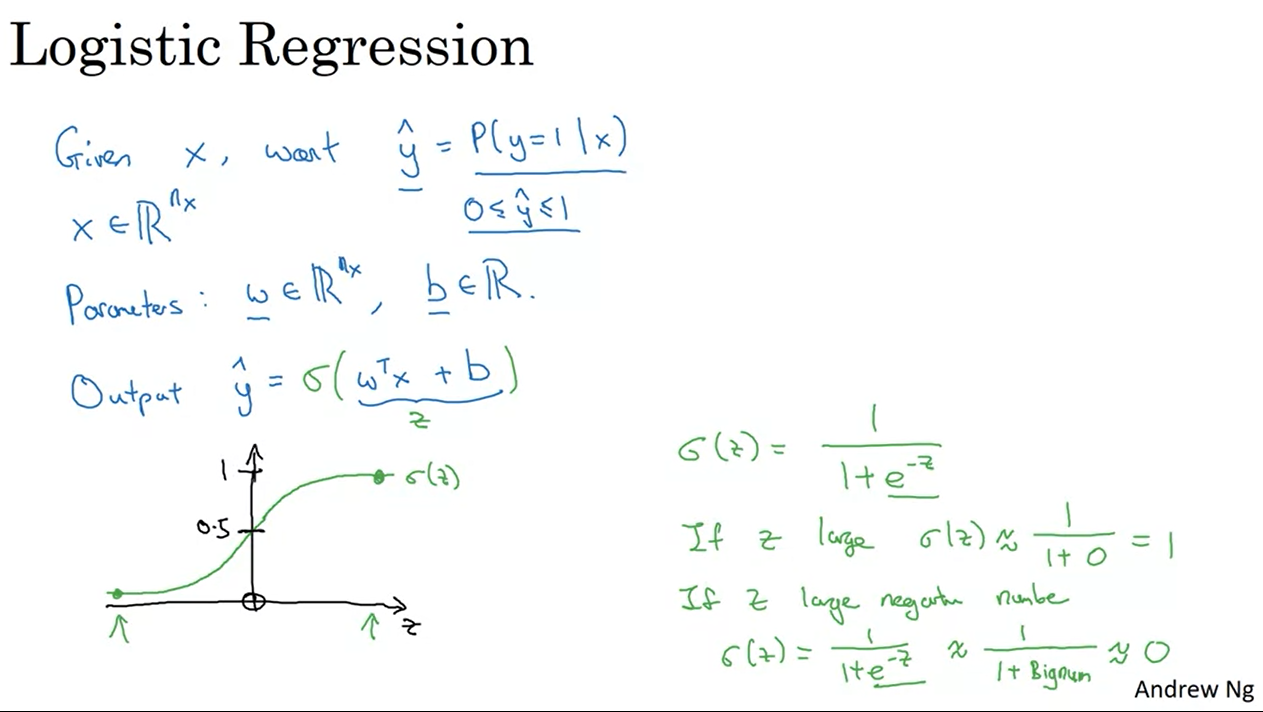 Logistic Regression
Given x, want ŷ = P(y=1|x)
x ∈ ℝ^{n_x}
0 ≤ ŷ ≤ 1
Parameters: w ∈ ℝ^{n_x}, b ∈ ℝ.
Output ŷ = σ(w^T x + b)
z
1
σ(z)
0.5
z
σ(z) = 1/(1+e^{-z})
If z large σ(z) ≈ 1/(1+0) = 1
If z large negative number
σ(z) = 1/(1+e^{-z}) ≈ 1/(1+Bignum) ≈ 0
Andrew Ng